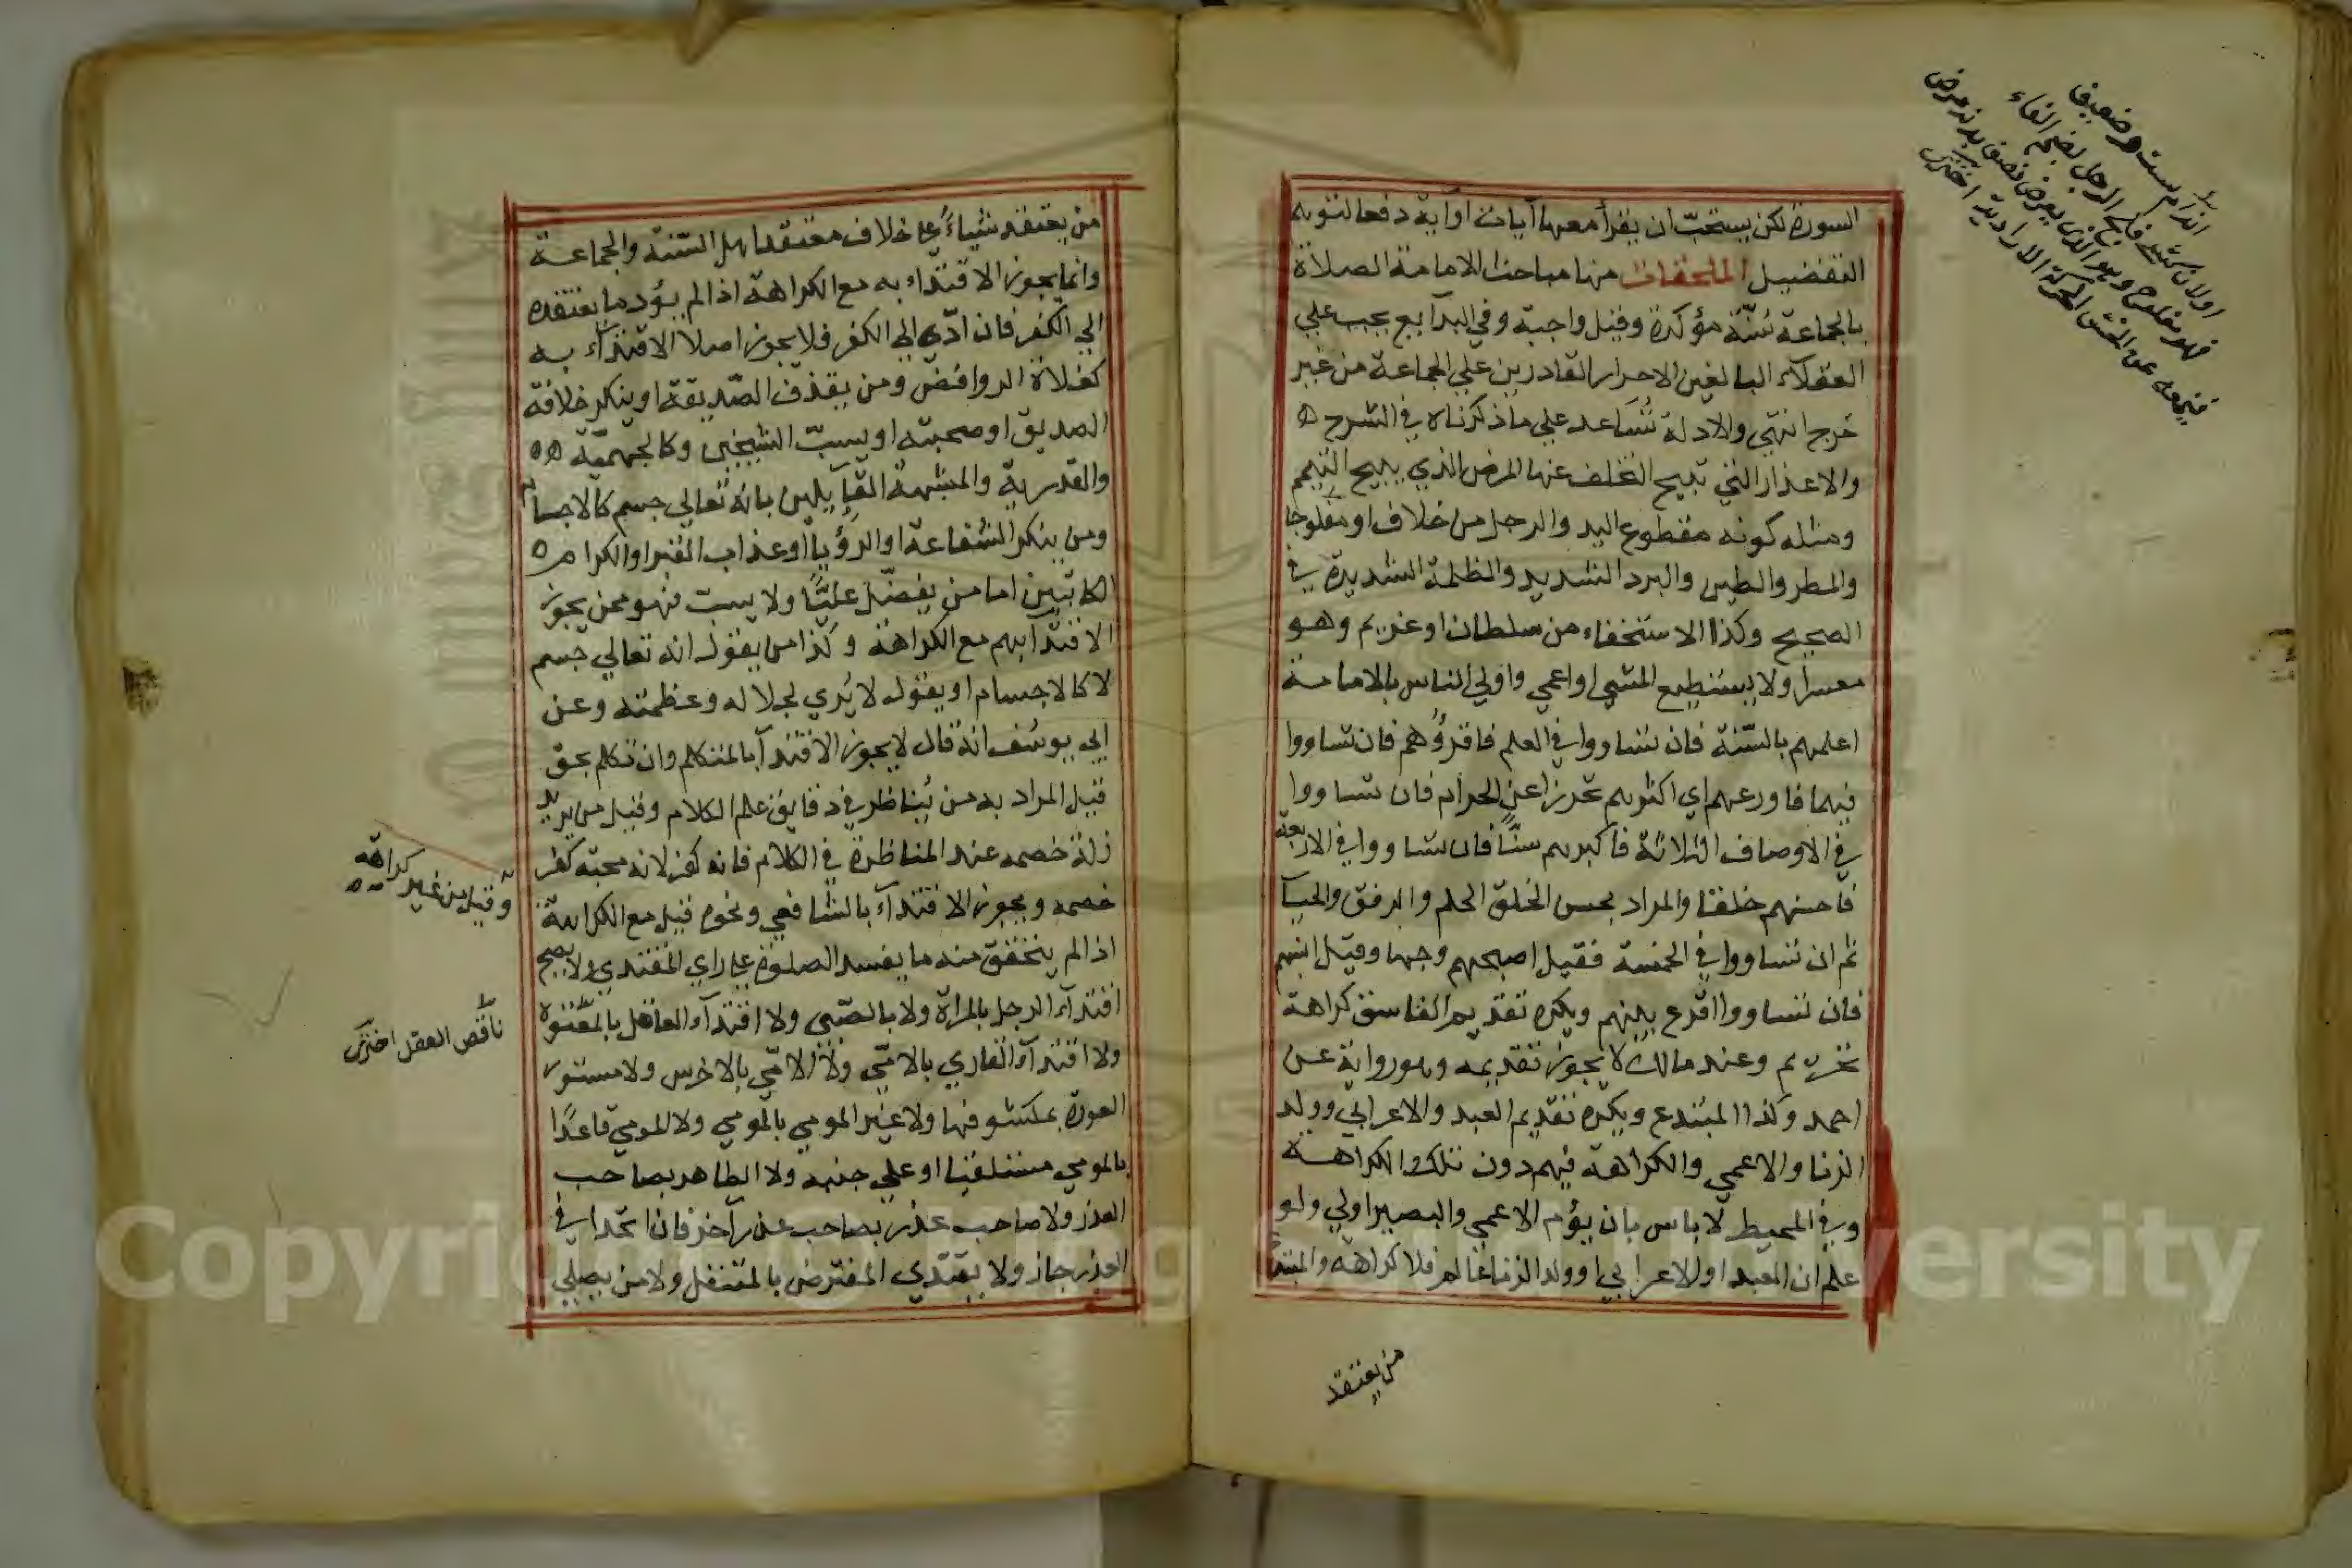 السورة لكن يستحبّ ان يقرأ معها آيات او آية دفعا لتوهم
التفضيل الملحقات منها مباحث الامامة الصلاة
بالجماعة سُنّة مؤكدة وقيل واجبة وفي البدآيع يجب علي
العقلآء البالغين الاحرار القادرين علي الجماعة من غير
حَرج انتهي والادلة تُسَاعد علي ما ذكرناه في الشرح ه
والاعذار التي تبيح التخلف عنها المرض الذي يبيح التيمم
ومثله كونه مقطوع اليد والرجل من خلاف او مفلوجا
والمطر والطين والبرد الشديد والظلمة الشديدة في
الصحيح وكذا الاستخفاء من سلطان او غريم وهو
معسر او لا يستطيع المشي او اعمي واولي الناس بالامامة
اعلمهم بالسّنة فان تساووا في العلم فاقرؤهم فان تساووا
فيهما فاورعهم اي اكثرهم تحرزا عن الحرام فان تساووا
في الاوصاف الثلاثة فاكبرهم سنّا فان تساووا في الاربعة
فاحسنهم خلقا والمراد بحسن الخلق الحلم والرفق والحيآ
ثم ان تساووا في الخمسة فقيل اصبحهم وجها وقيل انسبهم
فان تساووا اقرع بينهم ويكره تقديم الفاسق كراهة
تحريم وعند مالك لا يجوز تقديمه وهو رواية عن
احمد وكذا المبتدع ويكره تقديم العبد والاعرابي وولد
الزنا والاعمي والكراهة فيهم دون تلك الكراهة
وفي المحيط لا باس بان يؤم الاعمي والبصير اولي ولو
علم ان العبد او الاعرابي او ولد الزنا عالم فلا كراهة والمبتدع
من يعتقد
اولان كتبه فلج الرجل بضم الفاء
فهو مفلوج وهو الذي يعرض نصف بدنه مرض
فيمنعه عن الحسّ الحركة الارادية اختري
من يعتقد شياءً علي خلاف معتقد اهل السّنة والجماعة
وانما يجوز الاقتداء به مع الكراهة اذا لم يؤد ما يعتقده
الي الكفر فان ادّي الي الكفر فلا يجوز اصلا الاقتدآء به
كغلاة الروافض ومن يقذف الصّديقة او ينكر خلافة
الصديق او صحبته او يسبّ الشيخين وكالجهميّة ه ه
والقدرية والمشبهة القآيلين بانه تعالي جسم كالاجسام
ومن ينكر الشفاعة او الرؤيا او عذاب القبر او الكرام ه
الكاتبين اما من يفضّل عليّا ولا يسبّ فهو ممن يجوز
الاقتدا بهم مع الكراهة وكذا من يقول انه تعالي جسم
لا كالاجسام او يقول لا يُري لجلاله وعظمته وعن
ابي يوسُف انه قال لا يجوز الاقتدآ بالمتكلم وان تكلم بحق
قيل المراد به من يُناظر في دقايق علم الكلام وقيل من يريد
زلة خصمه عند المناظرة في الكلام فانه كفر لانه محبة كفر
خصمه ويجوز الاقتدآء بالشافعي ونحوه قيل مع الكراهة
وقيل من غير كراهة
اذا لم يتحقق منه ما يفسد الصلوة علي راي المقتدي ولا يصح
اقتدآء الرجل بالمرأة ولا بالصّبي ولا اقتدآء العاقل بالمعتوه
ناقص العقل اختري
ولا اقتدآء القاري بالامّي ولا الامّي بالاخرس ولا مستور
العورة بمكشوفها ولا غير المومي بالمومي ولا المومي قاعدًا
بالمومي مستلقيا او علي جنبه ولا الطاهر بصاحب
العذر ولا صاحب عذر بصاحب عذر آخر فان اتحدا في
العذر جاز ولا يقتدي المفترض بالمتنفل ولا من يصلي
Copyright © King Saud University